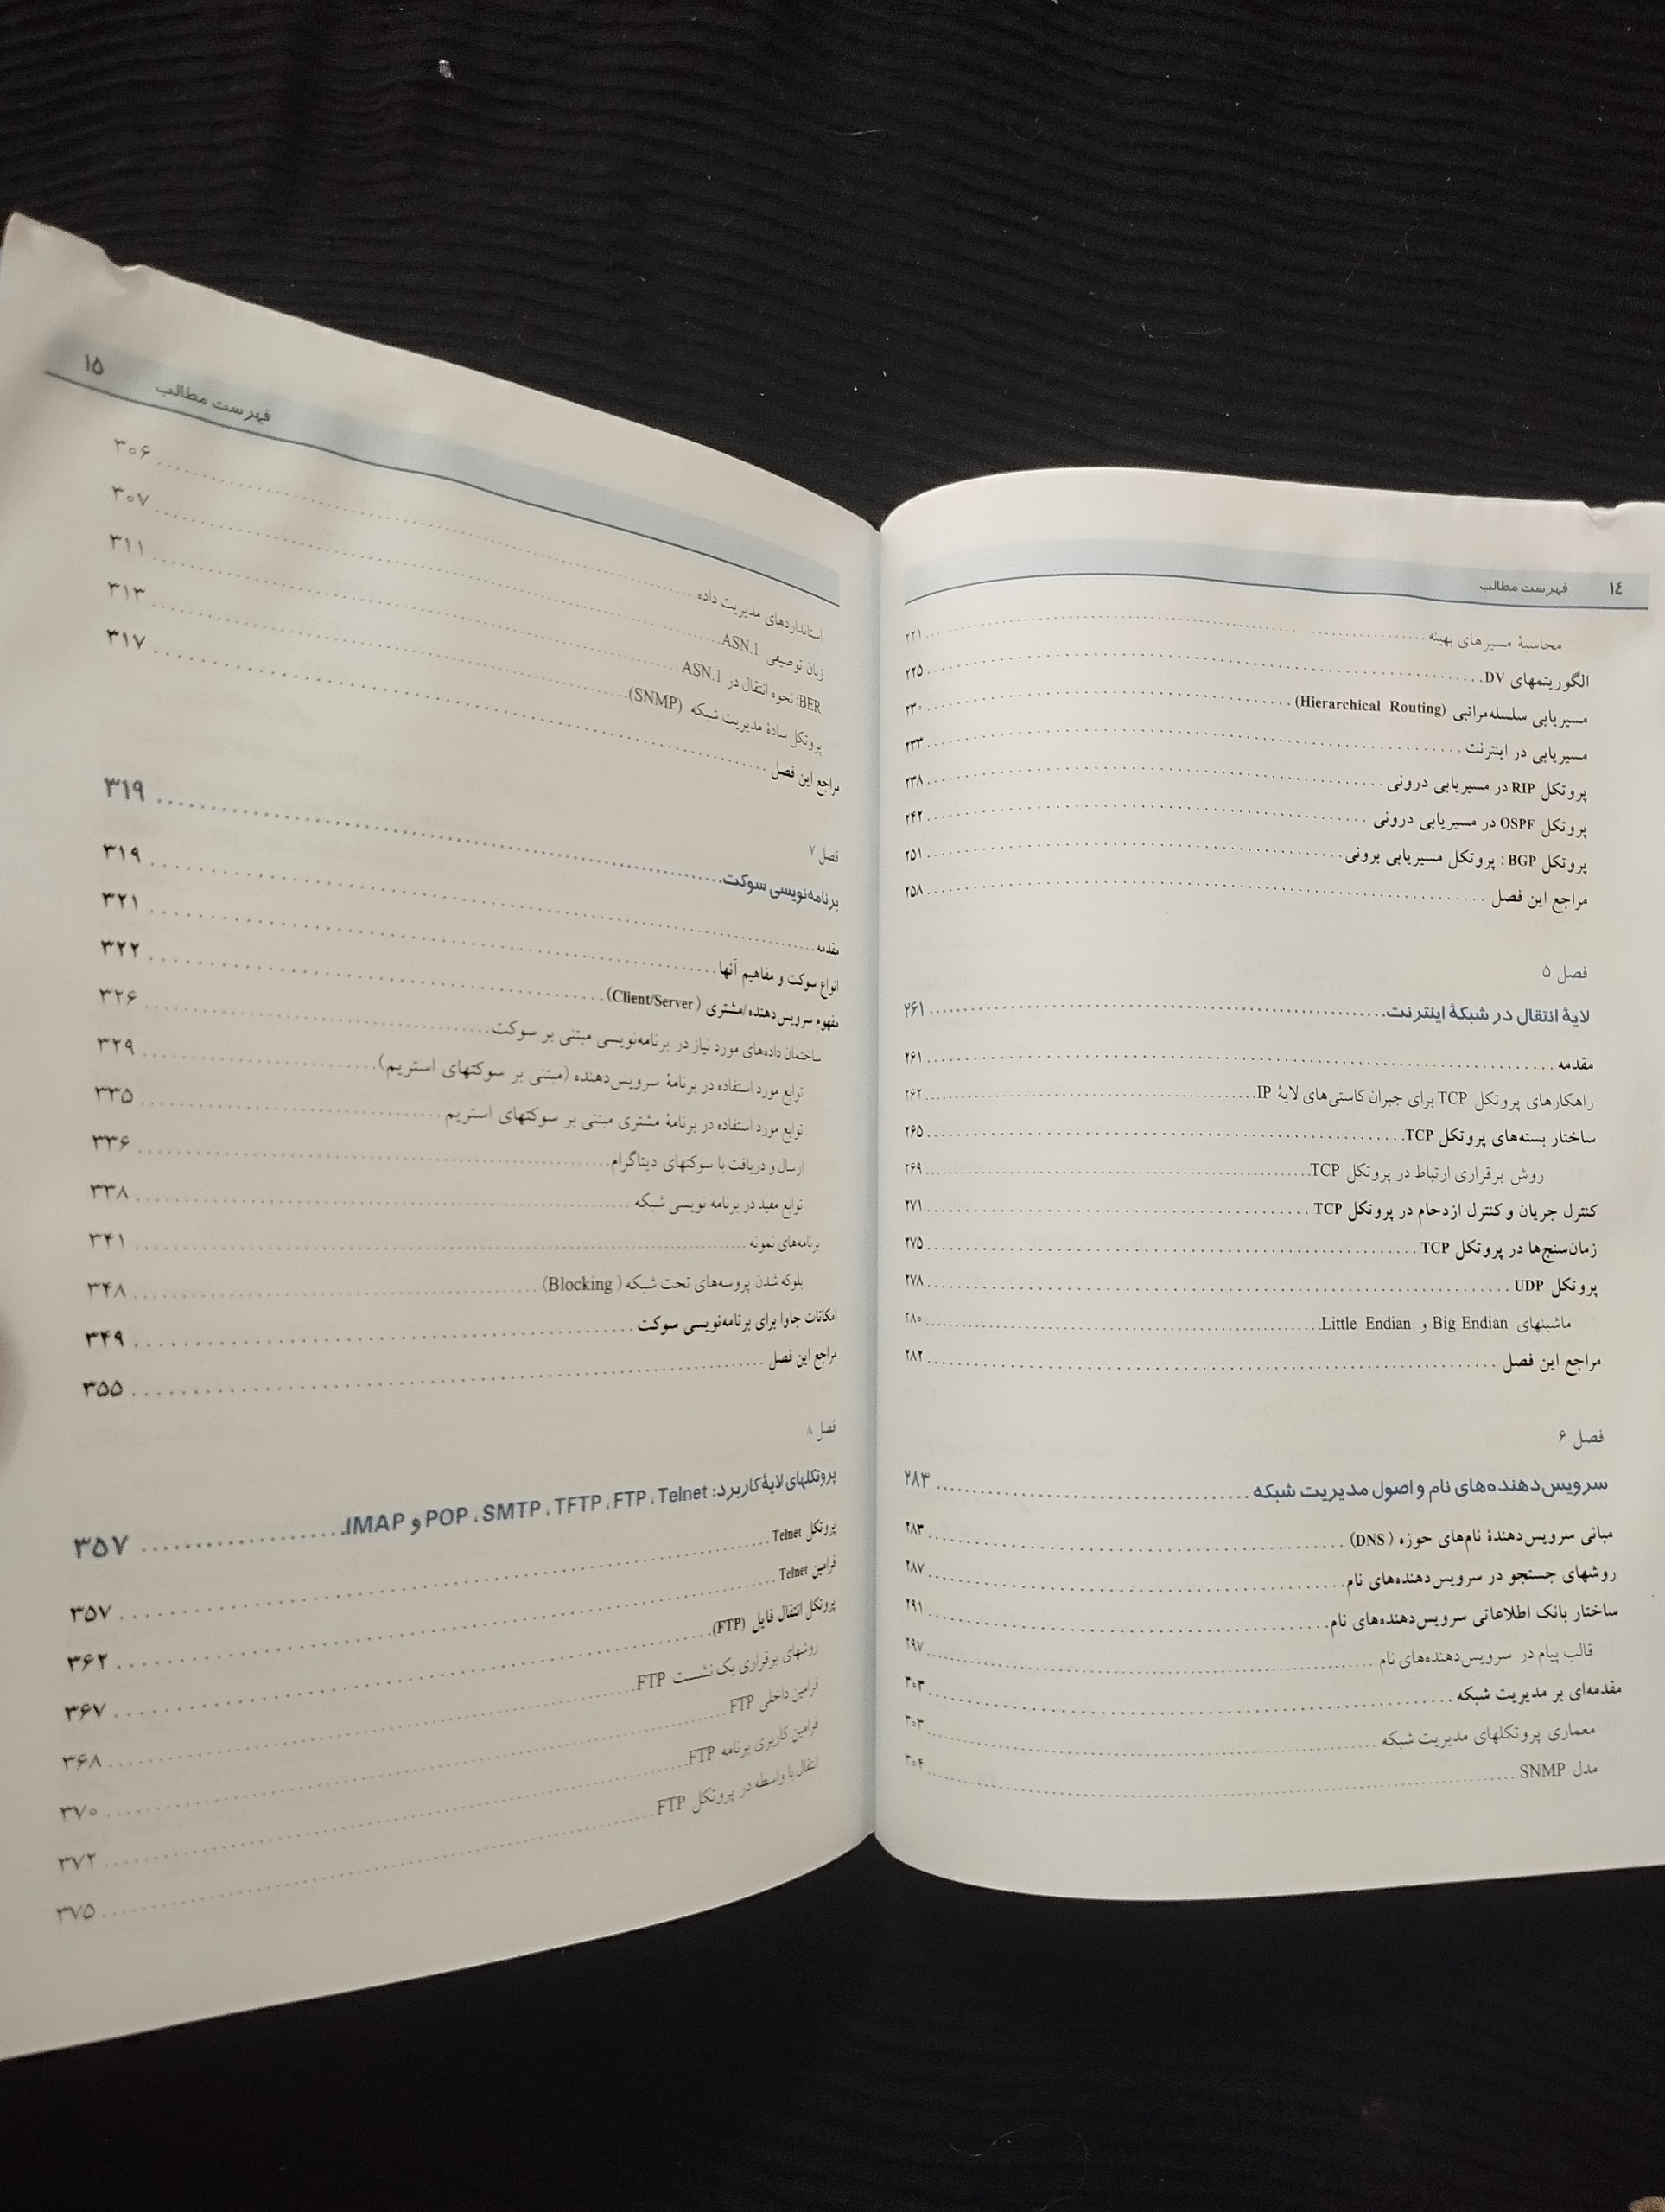 ۱٤ فهرست مطالب
محاسبهٔ مسیرهای بهینه ۲۲۱
الگوریتمهای DV ۲۲۵
مسیریابی سلسله‌مراتبی (Hierarchical Routing) ۲۳۰
مسیریابی در اینترنت ۲۳۳
پروتکل RIP در مسیریابی درونی ۲۳۸
پروتکل OSPF در مسیریابی درونی ۲۴۲
پروتکل BGP : پروتکل مسیریابی برونی ۲۵۱
مراجع این فصل ۲۵۸
فصل ۵
لایهٔ انتقال در شبکهٔ اینترنت ۲۶۱
مقدمه ۲۶۱
راهکارهای پروتکل TCP برای جبران کاستی‌های لایهٔ IP ۲۶۲
ساختار بسته‌های پروتکل TCP ۲۶۵
روش برقراری ارتباط در پروتکل TCP ۲۶۹
کنترل جریان و کنترل ازدحام در پروتکل TCP ۲۷۱
زمان‌سنج‌ها در پروتکل TCP ۲۷۵
پروتکل UDP ۲۷۸
ماشینهای Big Endian و Little Endian ۲۸۰
مراجع این فصل ۲۸۲
فصل ۶
سرویس‌دهنده‌های نام و اصول مدیریت شبکه ۲۸۳
مبانی سرویس‌دهندهٔ نام‌های حوزه (DNS) ۲۸۳
روشهای جستجو در سرویس‌دهنده‌های نام ۲۸۷
ساختار بانک اطلاعاتی سرویس‌دهنده‌های نام ۲۹۱
قالب پیام در سرویس‌دهنده‌های نام ۲۹۷
مقدمه‌ای بر مدیریت شبکه ۳۰۳
معماری پروتکلهای مدیریت شبکه ۳۰۳
مدل SNMP ۳۰۴
فهرست مطالب ۱۵
استانداردهای مدیریت داده ۳۰۶
زبان توصیفی ASN.1 ۳۰۷
BER: نحوه انتقال در ASN.1 ۳۱۱
پروتکل سادهٔ مدیریت شبکه (SNMP) ۳۱۳
مراجع این فصل ۳۱۷
فصل ۷
برنامه‌نویسی سوکت ۳۱۹
مقدمه ۳۱۹
انواع سوکت و مفاهیم آنها ۳۲۱
مفهوم سرویس‌دهنده/مشتری (Client/Server) ۳۲۲
ساختمان داده‌های مورد نیاز در برنامه‌نویسی مبتنی بر سوکت ۳۲۶
توابع مورد استفاده در برنامهٔ سرویس‌دهنده (مبتنی بر سوکتهای استریم) ۳۲۹
توابع مورد استفاده در برنامهٔ مشتری مبتنی بر سوکتهای استریم ۳۳۵
ارسال و دریافت با سوکتهای دیتاگرام ۳۳۶
توابع مفید در برنامه نویسی شبکه ۳۳۸
برنامه‌های نمونه ۳۴۱
بلوکه شدن پروسه‌های تحت شبکه (Blocking) ۳۴۸
امکانات جاوا برای برنامه‌نویسی سوکت ۳۴۹
مراجع این فصل ۳۵۵
فصل ۸
پروتکلهای لایهٔ کاربرد: Telnet، FTP، TFTP، SMTP، POP و IMAP ۳۵۷
پروتکل Telnet ۳۵۷
فرامین Telnet ۳۶۲
پروتکل انتقال فایل (FTP) ۳۶۷
روشهای برقراری یک نشست FTP ۳۶۸
فرامین داخلی FTP ۳۷۰
فرامین کاربری برنامه FTP ۳۷۲
انتقال با واسطه در پروتکل FTP ۳۷۵